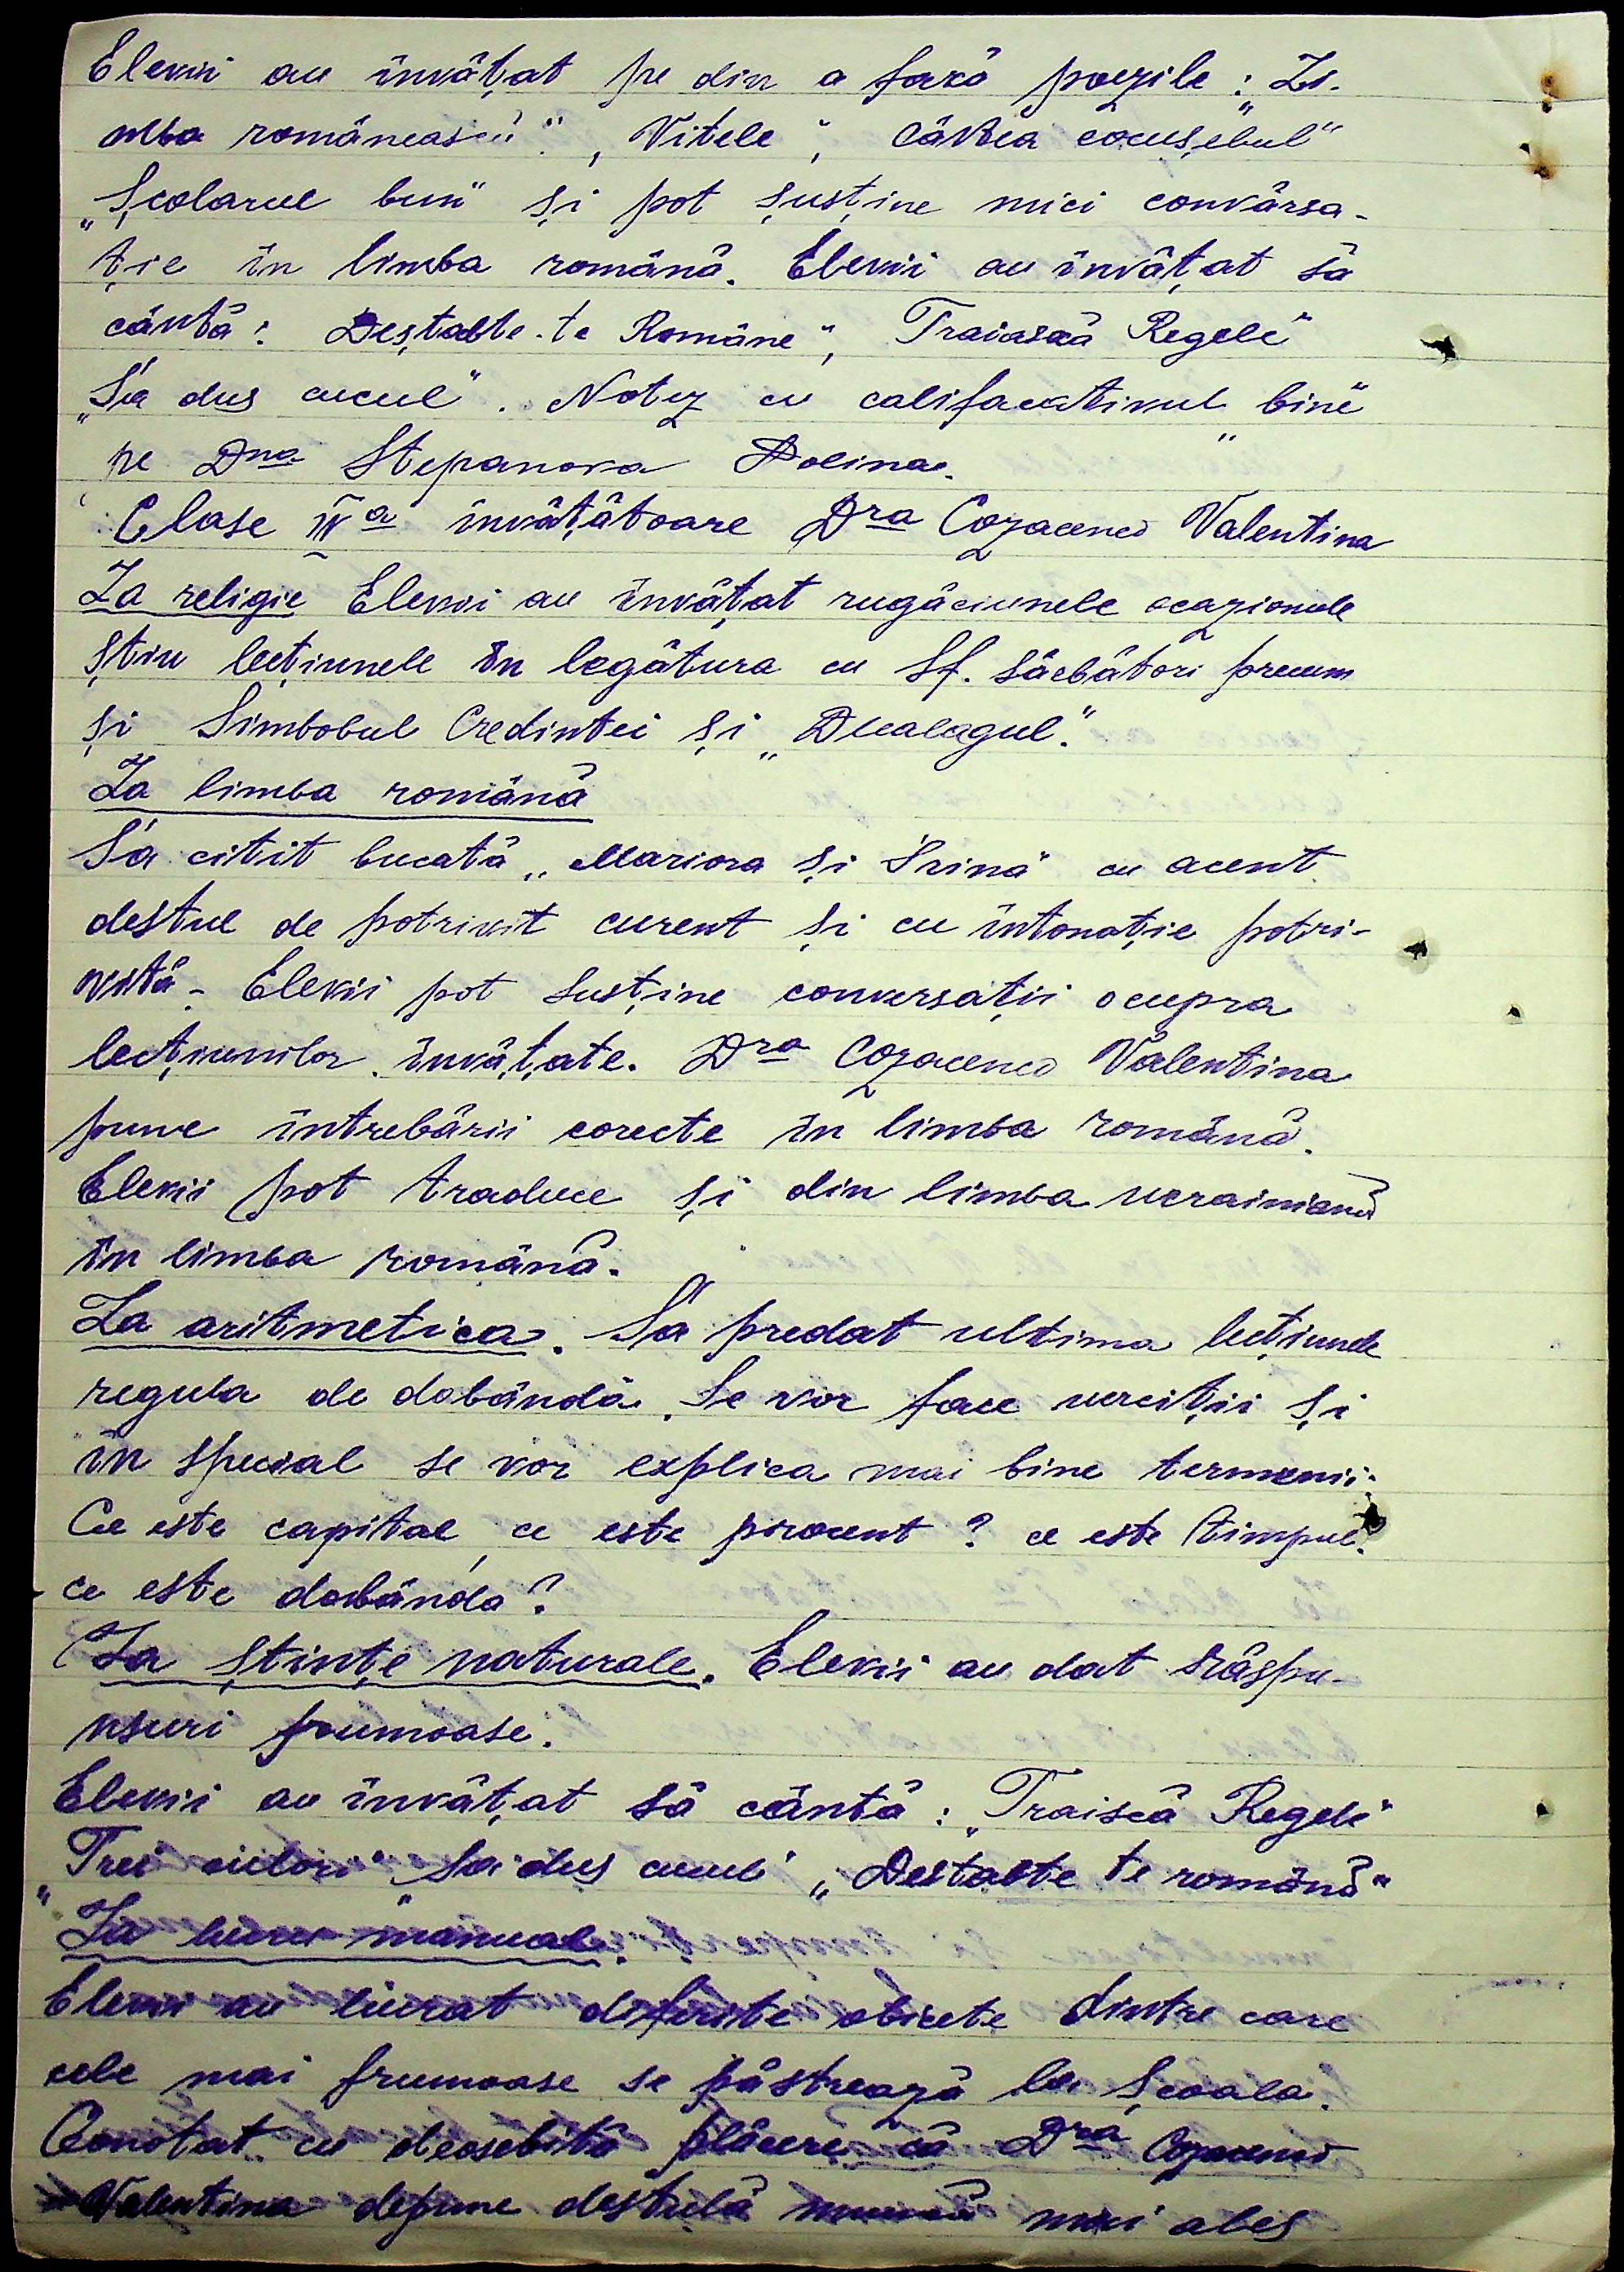 Elevii au învățat pe din a fară poezile: „Li-
mba românească", „Vitele", Cântea cocușelul"
„Școlarul bun" și pot șusține mici convărsa-
ție în limba română. Elevii au învățat să
cântă: Deștabte-te Române", Traiască Regele"
„S'a dus cucul". Notez cu calificativul „bine"
pe Dna Stepanova Polina.
Clase IV a învățătoare Dra Cozacenco Valentina
La religie Elevii au învățat rugăciunele ocazionale
știu lecțiunele în legătura cu Sf. Sărbători precum
și Simbolul Credintei și „Decalagul".
La limba română
S'a citit bucată „Mariora și Irina" cu acent
destul de potrivit curent și cu intonație potri-
vită. Elevii pot susține conversații ocupra
lecțiunilor învățate. Dra Cozacenco Valentina
pune întrebării corecte în limba română.
Elevii pot traduce și din limba ucrainiană
în limba română.
La aritmetica. S'a predat ultima lecțiunele
regula de dobândă. Se vor face exerciții și
în special se vor explica mai bine termenii:
Ce este capital, ce este procent? ce este timpul?
ce este dobânda?
La ștințe naturale. Elevii au dat răspu-
nsuri frumoase.
Elevii au învățat să cântă: „Traiscă Regele"
„Trei culori" „Sa dus cucul" „Destabte te română"
La lucru manual.
Elevii au lucrat diferite obiecte dintre care
cele mai frumoase se păstrează la școala.
Constat cu deosebită plăcere că Dra Cozacenco
Valentina depune destulă muncă mai ales